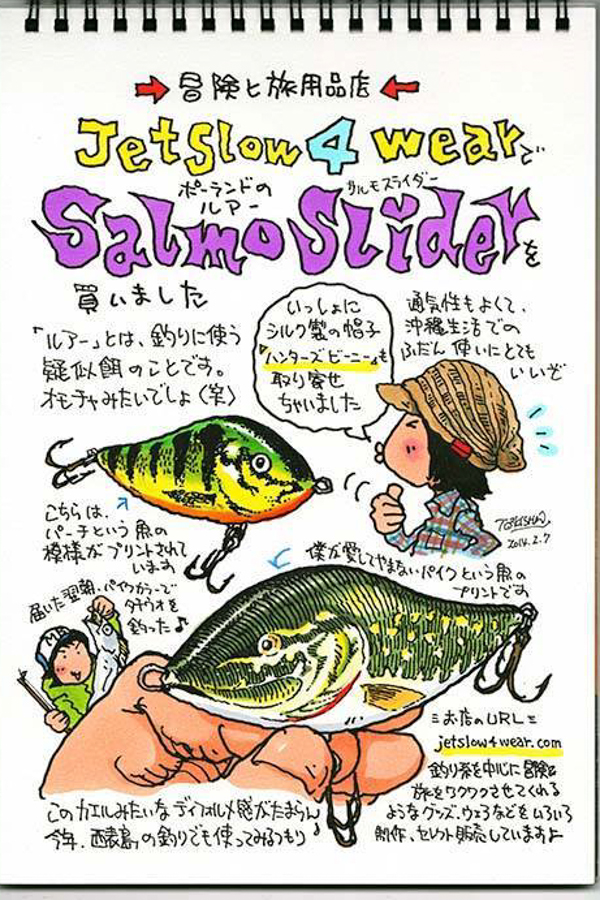 冒険と旅用品店
Jetslow4wearで
ポーランドの
ルアー
サルモスライダー
Salmo Sliderを
買いました
「ルアー」とは、釣りに使う
疑似餌のことです。
オモチャみたいでしょ(笑)
いっしょに
シルク製の帽子
「ハンターズビーニー」も
取り寄せ
ちゃいました
通気性もよくて、
沖縄生活での
ふだん使いにとても
いいぞ
こちらは、
パーチという魚の
模様がプリントされて
います
2014.2.7
僕が愛してやまないパイクという魚の
プリントです
届いた翌朝、パイクカラーで
タチウオを
釣った♪
お店のURL
jetslow4wear.com
釣り祭を中心に冒険と
旅をワクワクさせてくれる
ようなグッズ、ウェアなどをいろいろ
制作、セレクト販売していますよ
このカエルみたいなディフォルメ感がたまらん
今年、西表島の釣りでも使ってみるつもり♪